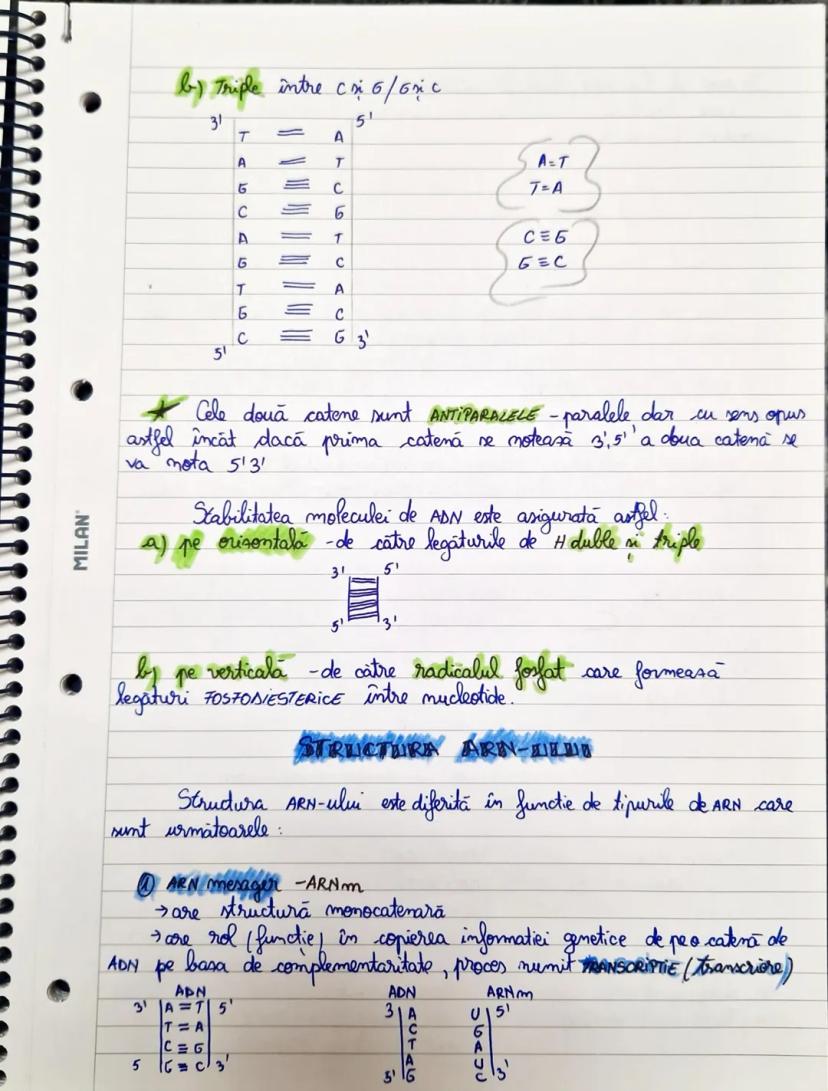 b) Triple între C și G / G și C
3' 5'
T = A
A = T
G ≡ C
C ≡ G
A = T
G ≡ C
T = A
G ≡ C
C ≡ G
5' 3'
A = T
T = A
C ≡ G
G ≡ C
★ Cele două catene sunt ANTIPARALELE - paralele dar cu sens opus
astfel încât dacă prima catenă se notează 3', 5' a doua catenă se
va nota 5' 3'
MILAN
Stabilitatea moleculei de ADN este asigurată astfel:
a) pe orizontală - de către legăturile de H duble și triple
3' 5'
5' 3'
b) pe verticală - de către radicalul fosfat care formează
legături FOSFODIESTERICE între nucleotide.
STRUCTURA ARN-ULUI
Structura ARN-ului este diferită în functie de tipurile de ARN care
sunt următoarele:
① ARN mesager - ARNm
→ are structură monocatenară
→ are rol (functie) în copierea informatiei genetice de pe o catenă de
ADN pe baza de complementaritate, proces numit TRANSCRIPTIE (transcriere)
ADN
3' A = T 5'
T = A
C ≡ G
5 G ≡ C 3'
ADN ARNm
3 A U 5'
C G
T A
A U
5' G C 3'